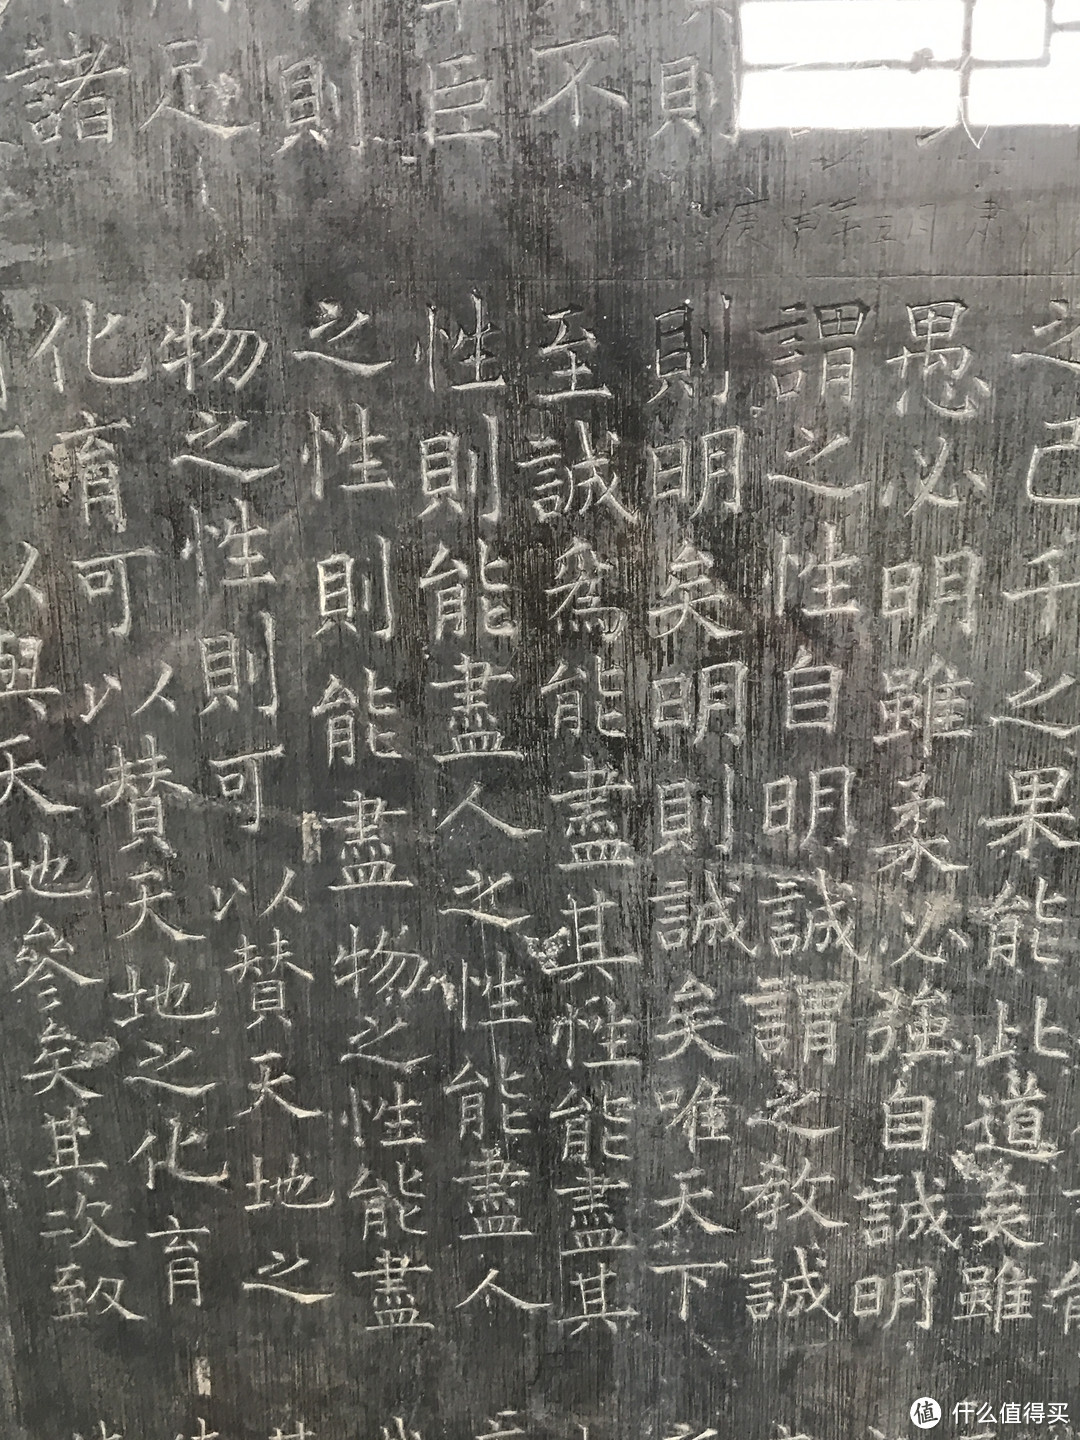 則
不
臣
則
足
諸
庚申年三月
之己千之果能此道矣雖
愚必明雖柔必強自誠明
謂之性自明誠謂之教誠
則明矣明則誠矣唯天下
至誠爲能盡其性能盡其
性則能盡人之性能盡人
之性則能盡物之性能盡
物之性則可以贊天地之
化育可以贊天地之化育
以與天地參矣其次致
值 什么值得买